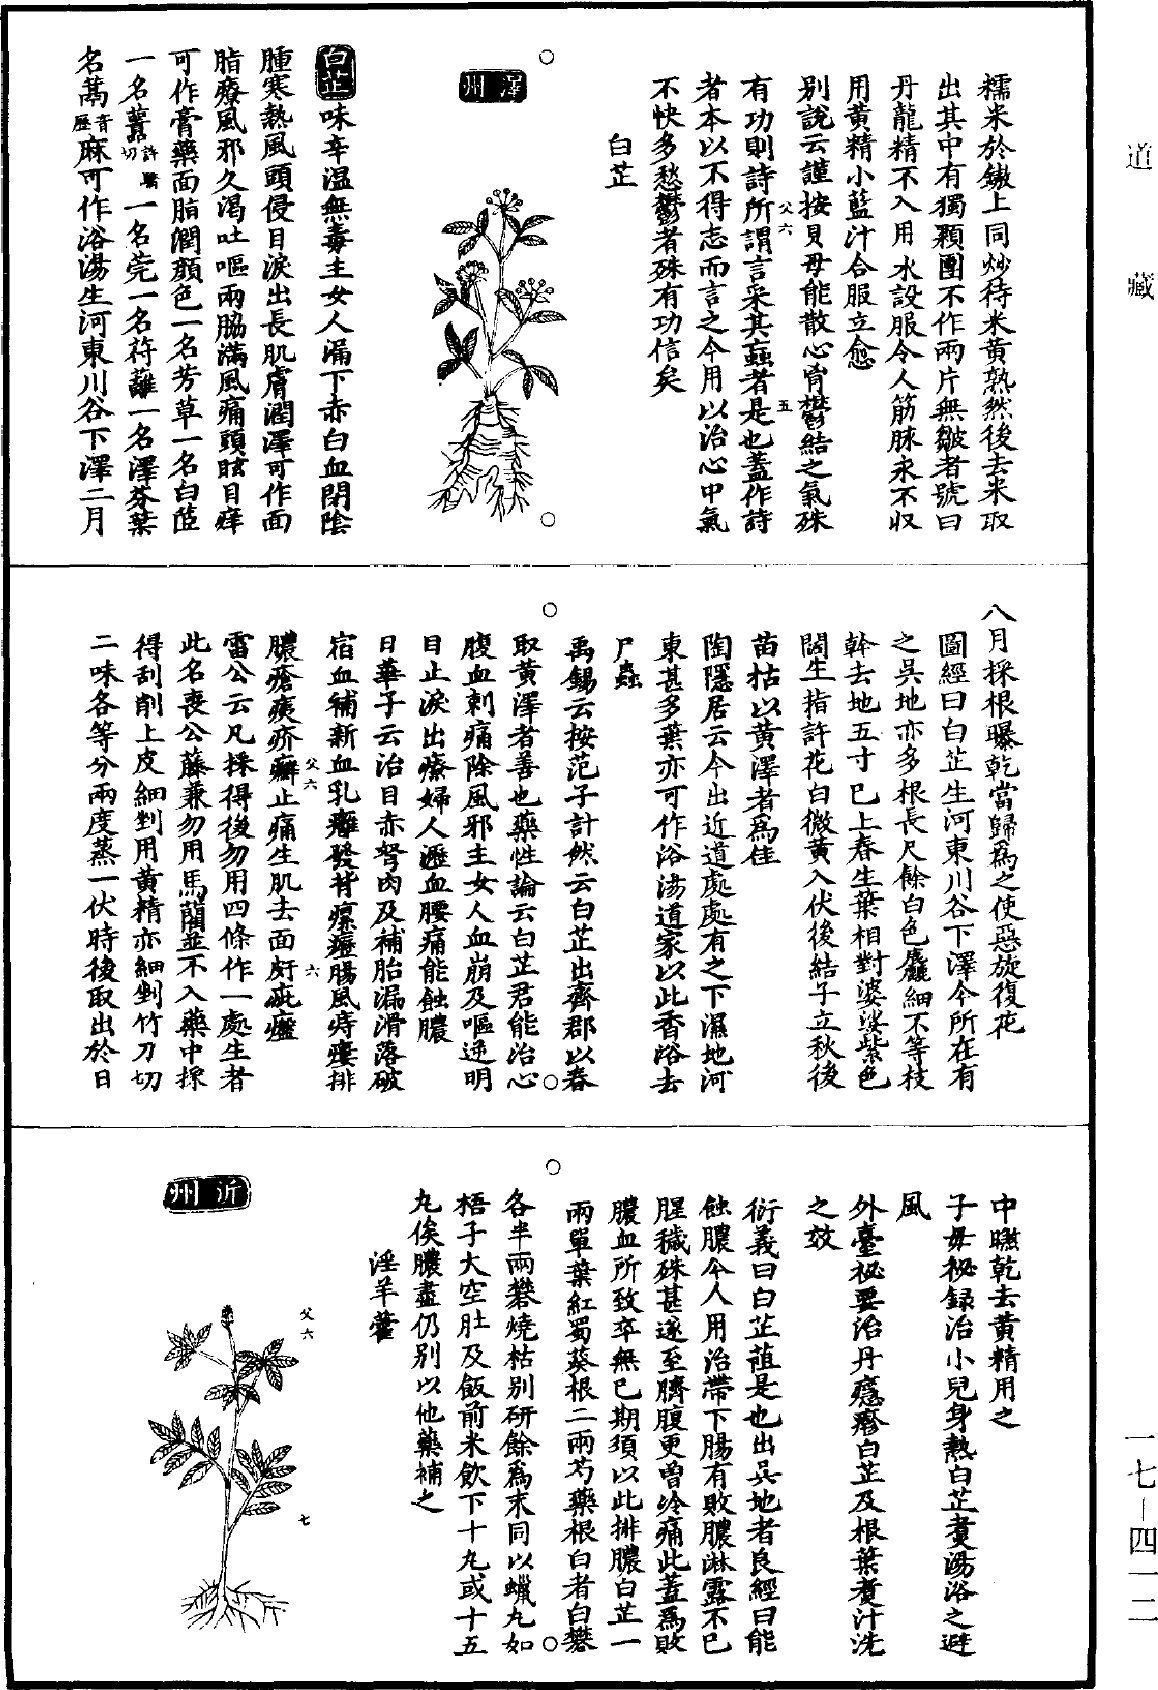 道藏
糯米於鏊上同炒待米黃熟然後去米取
出其中有獨顆團不作兩片無皺者號曰
丹龍精不入用水設服令人筋脉永不収
用黃精小藍汁合服立愈
別說云謹按貝母能散心胷鬱結之氣殊
有功則詩所謂言采其蝱者是也蓋作詩
父六
五
者本以不得志而言之今用以治心中氣
不快多愁鬱者殊有功信矣
白芷
澤州
白芷味辛溫無毒主女人漏下赤白血閉陰
腫寒熱風頭侵目淚出長肌膚潤澤可作面
脂療風邪久渴吐嘔兩脇滿風痛頭眩目痒
可作膏藥面脂潤顏色一名芳草一名白茝
一名蘺許驕切一名莞一名苻蘺一名澤芬葉
名蒚音歷麻可作浴湯生河東川谷下澤二月
八月採根曝乾當歸為之使惡旋復花
圖經曰白芷生河東川谷下澤今所在有
之吳地亦多根長尺餘白色麄細不等枝
幹去地五寸已上春生葉相對婆娑紫色
闊生指許花白微黃入伏後結子立秋後
苗枯以黃澤者為佳
陶隱居云今出近道處處有之下濕地河
東甚多葉亦可作浴湯道家以此香浴去
尸蟲
禹錫云按范子計然云白芷出齊郡以春
取黃澤者善也藥性論云白芷君能治心
腹血刺痛除風邪主女人血崩及嘔逆明
目止淚出療婦人瀝血腰痛能蝕膿
日華子云治目赤弩肉及補胎漏滑落破
宿血補新血乳癰發背瘰癧腸風痔瘻排
父六
六
膿瘡痍疥癬止痛生肌去面皯疵瘢
雷公云凡採得後勿用四條作一處生者
此名喪公藤兼勿用馬藺並不入藥中採
得刮削上皮細剉用黃精亦細剉竹刀切
二味各等分兩度蒸一伏時後取出於日
中曬乾去黃精用之
子母秘録治小兒身熱白芷煮湯浴之避
風
外臺祕要治丹癮疹白芷及根葉煮汁洗
之效
衍義曰白芷茝是也出吳地者良經曰能
蝕膿今人用治帶下腸有敗膿淋露不已
腥穢殊甚遂至臍腹更增冷痛此蓋為敗
膿血所致卒無已期須以此排膿白芷一
兩單葉紅蜀葵根二兩芍藥根白者白礬
各半兩礬燒枯別研餘為末同以蠟丸如
梧子大空肚及飯前米飲下十丸或十五
丸俟膿盡仍別以他藥補之
淫羊藿
父六
七
沂州
一七—四一二